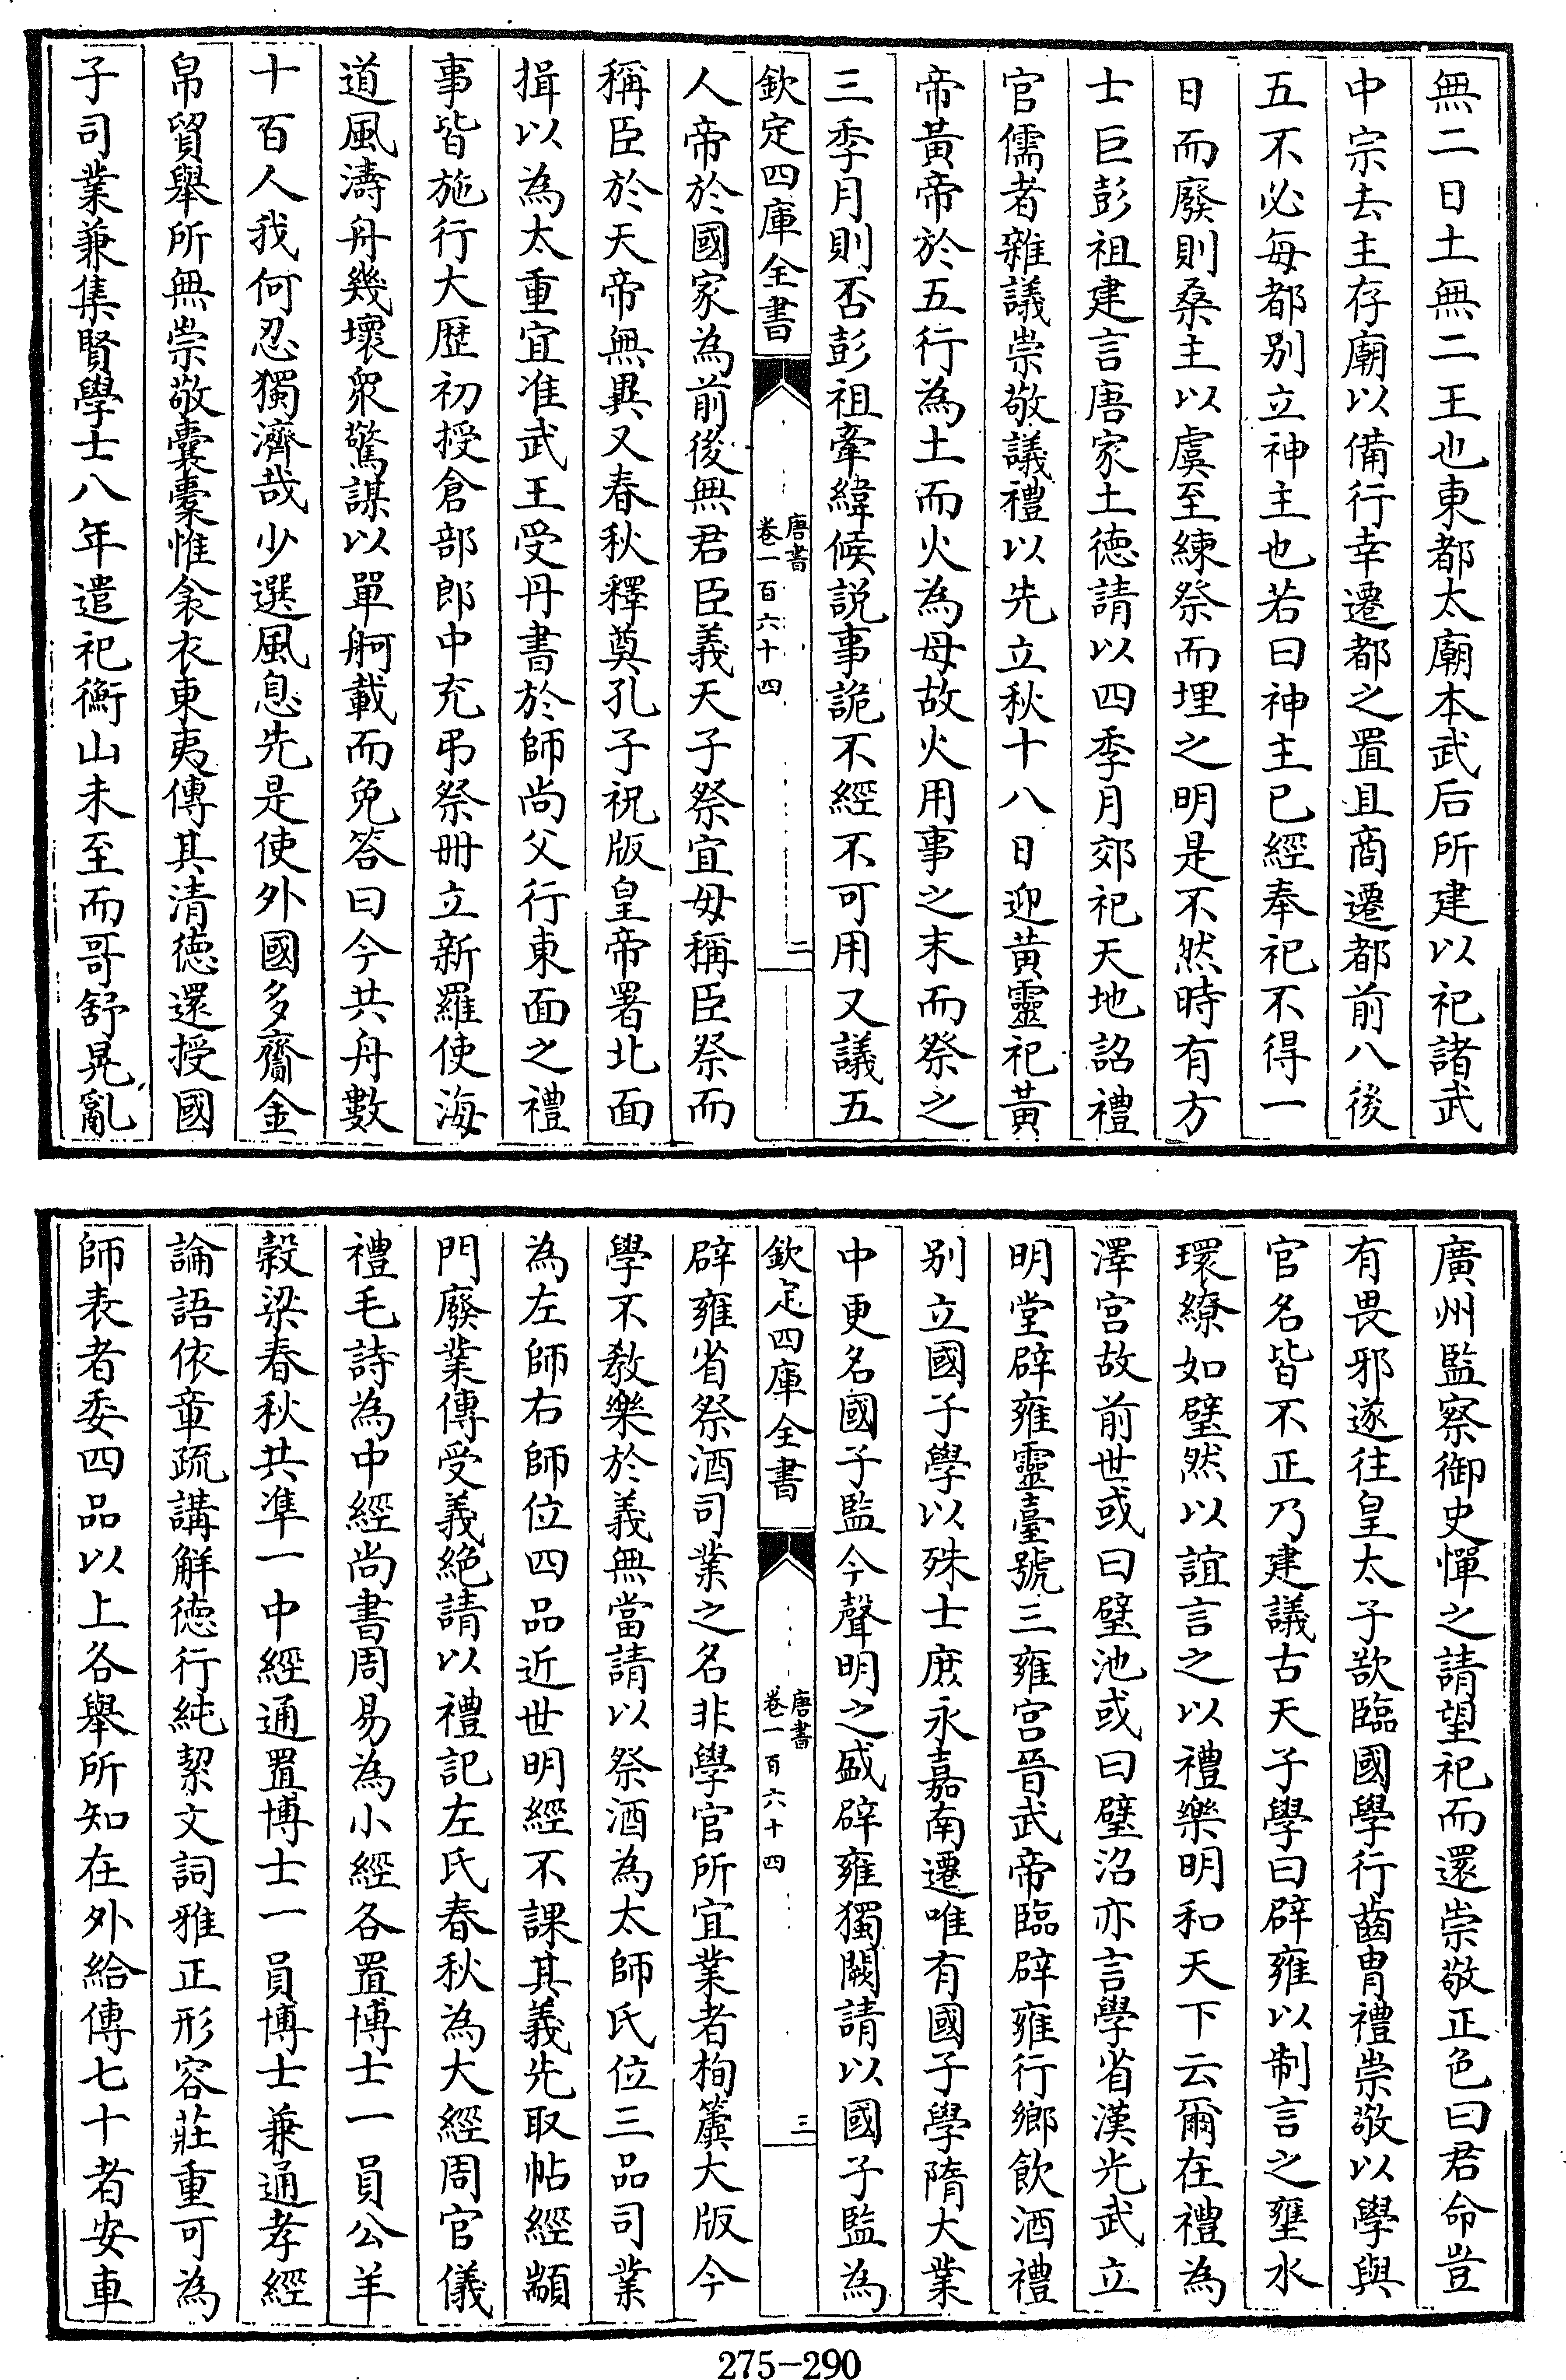 無二日土無二王也東都太廟本武后所建以祀諸武
中宗去主存廟以備行幸遷都之置且商遷都前八後
五不必每都别立神主也若曰神主已經奉祀不得一
日而廢則桑主以虞至練祭而埋之明是不然時有方
士巨彭祖建言唐家土德請以四季月郊祀天地詔禮
官儒者雜議崇敬議禮以先立秋十八日迎黄靈祀黄
帝黄帝於五行為土而火為母故火用事之末而祭之
三季月則否彭祖牽緯候説事詭不經不可用又議五
欽定四庫全書
唐書
卷一百六十四
二
人帝於國家為前後無君臣義天子祭宜毋稱臣祭而
稱臣於天帝無異又春秋釋奠孔子祝版皇帝署北面
揖以為太重宜准武王受丹書於師尚父行東面之禮
事皆施行大歴初授倉部郎中充弔祭冊立新羅使海
道風濤舟幾壞衆驚謀以單舸載而免答曰今共舟數
十百人我何忍獨濟哉少選風息先是使外國多齎金
帛貿舉所無崇敬囊橐惟衾衣東夷傳其清德還授國
子司業兼集賢學士八年遣祀衡山未至而哥舒晃亂
廣州監察御史憚之請望祀而還崇敬正色曰君命豈
有畏邪遂往皇太子欲臨國學行齒胄禮崇敬以學與
官名皆不正乃建議古天子學曰辟雍以制言之壅水
環繚如璧然以誼言之以禮樂明和天下云爾在禮為
澤宫故前世或曰璧池或曰璧沼亦言學省漢光武立
明堂辟雍靈臺號三雍宫晉武帝臨辟雍行鄉飲酒禮
别立國子學以殊士庶永嘉南遷唯有國子學隋大業
中更名國子監今聲明之盛辟雍獨闕請以國子監為
欽定四庫全書
唐書
卷一百六十四
三
辟雍省祭酒司業之名非學官所宜業者栒簴大版今
學不教樂於義無當請以祭酒為太師氏位三品司業
為左師右師位四品近世明經不課其義先取帖經顓
門廢業傳受義絶請以禮記左氏春秋為大經周官儀
禮毛詩為中經尚書周易為小經各置博士一員公羊
穀梁春秋共準一中經通置博士一員博士兼通孝經
論語依章疏講解德行純絜文詞雅正形容莊重可為
師表者委四品以上各舉所知在外給傳七十者安車
275-290